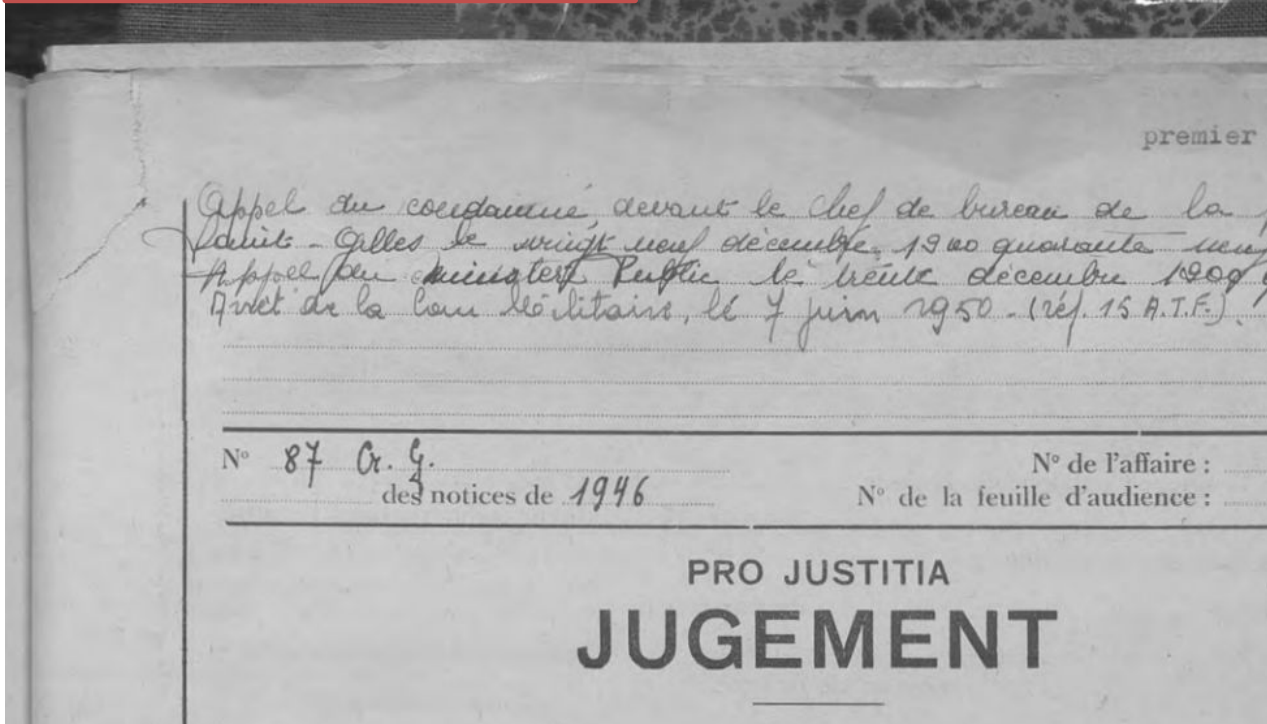 premier
Appel du condamné, devant le chef de bureau de la
Saint-Gilles le vingt neuf décembre 1900 quarante neuf
Appel du Public le trente décembre 1900
Arret de la Cour Militaire, le 7 juin 1950 - (réf. 15 A.T.F.).
N° 87 Cr. G.
des notices de 1946
N° de l'affaire :
N° de la feuille d'audience :
PRO JUSTITIA
JUGEMENT